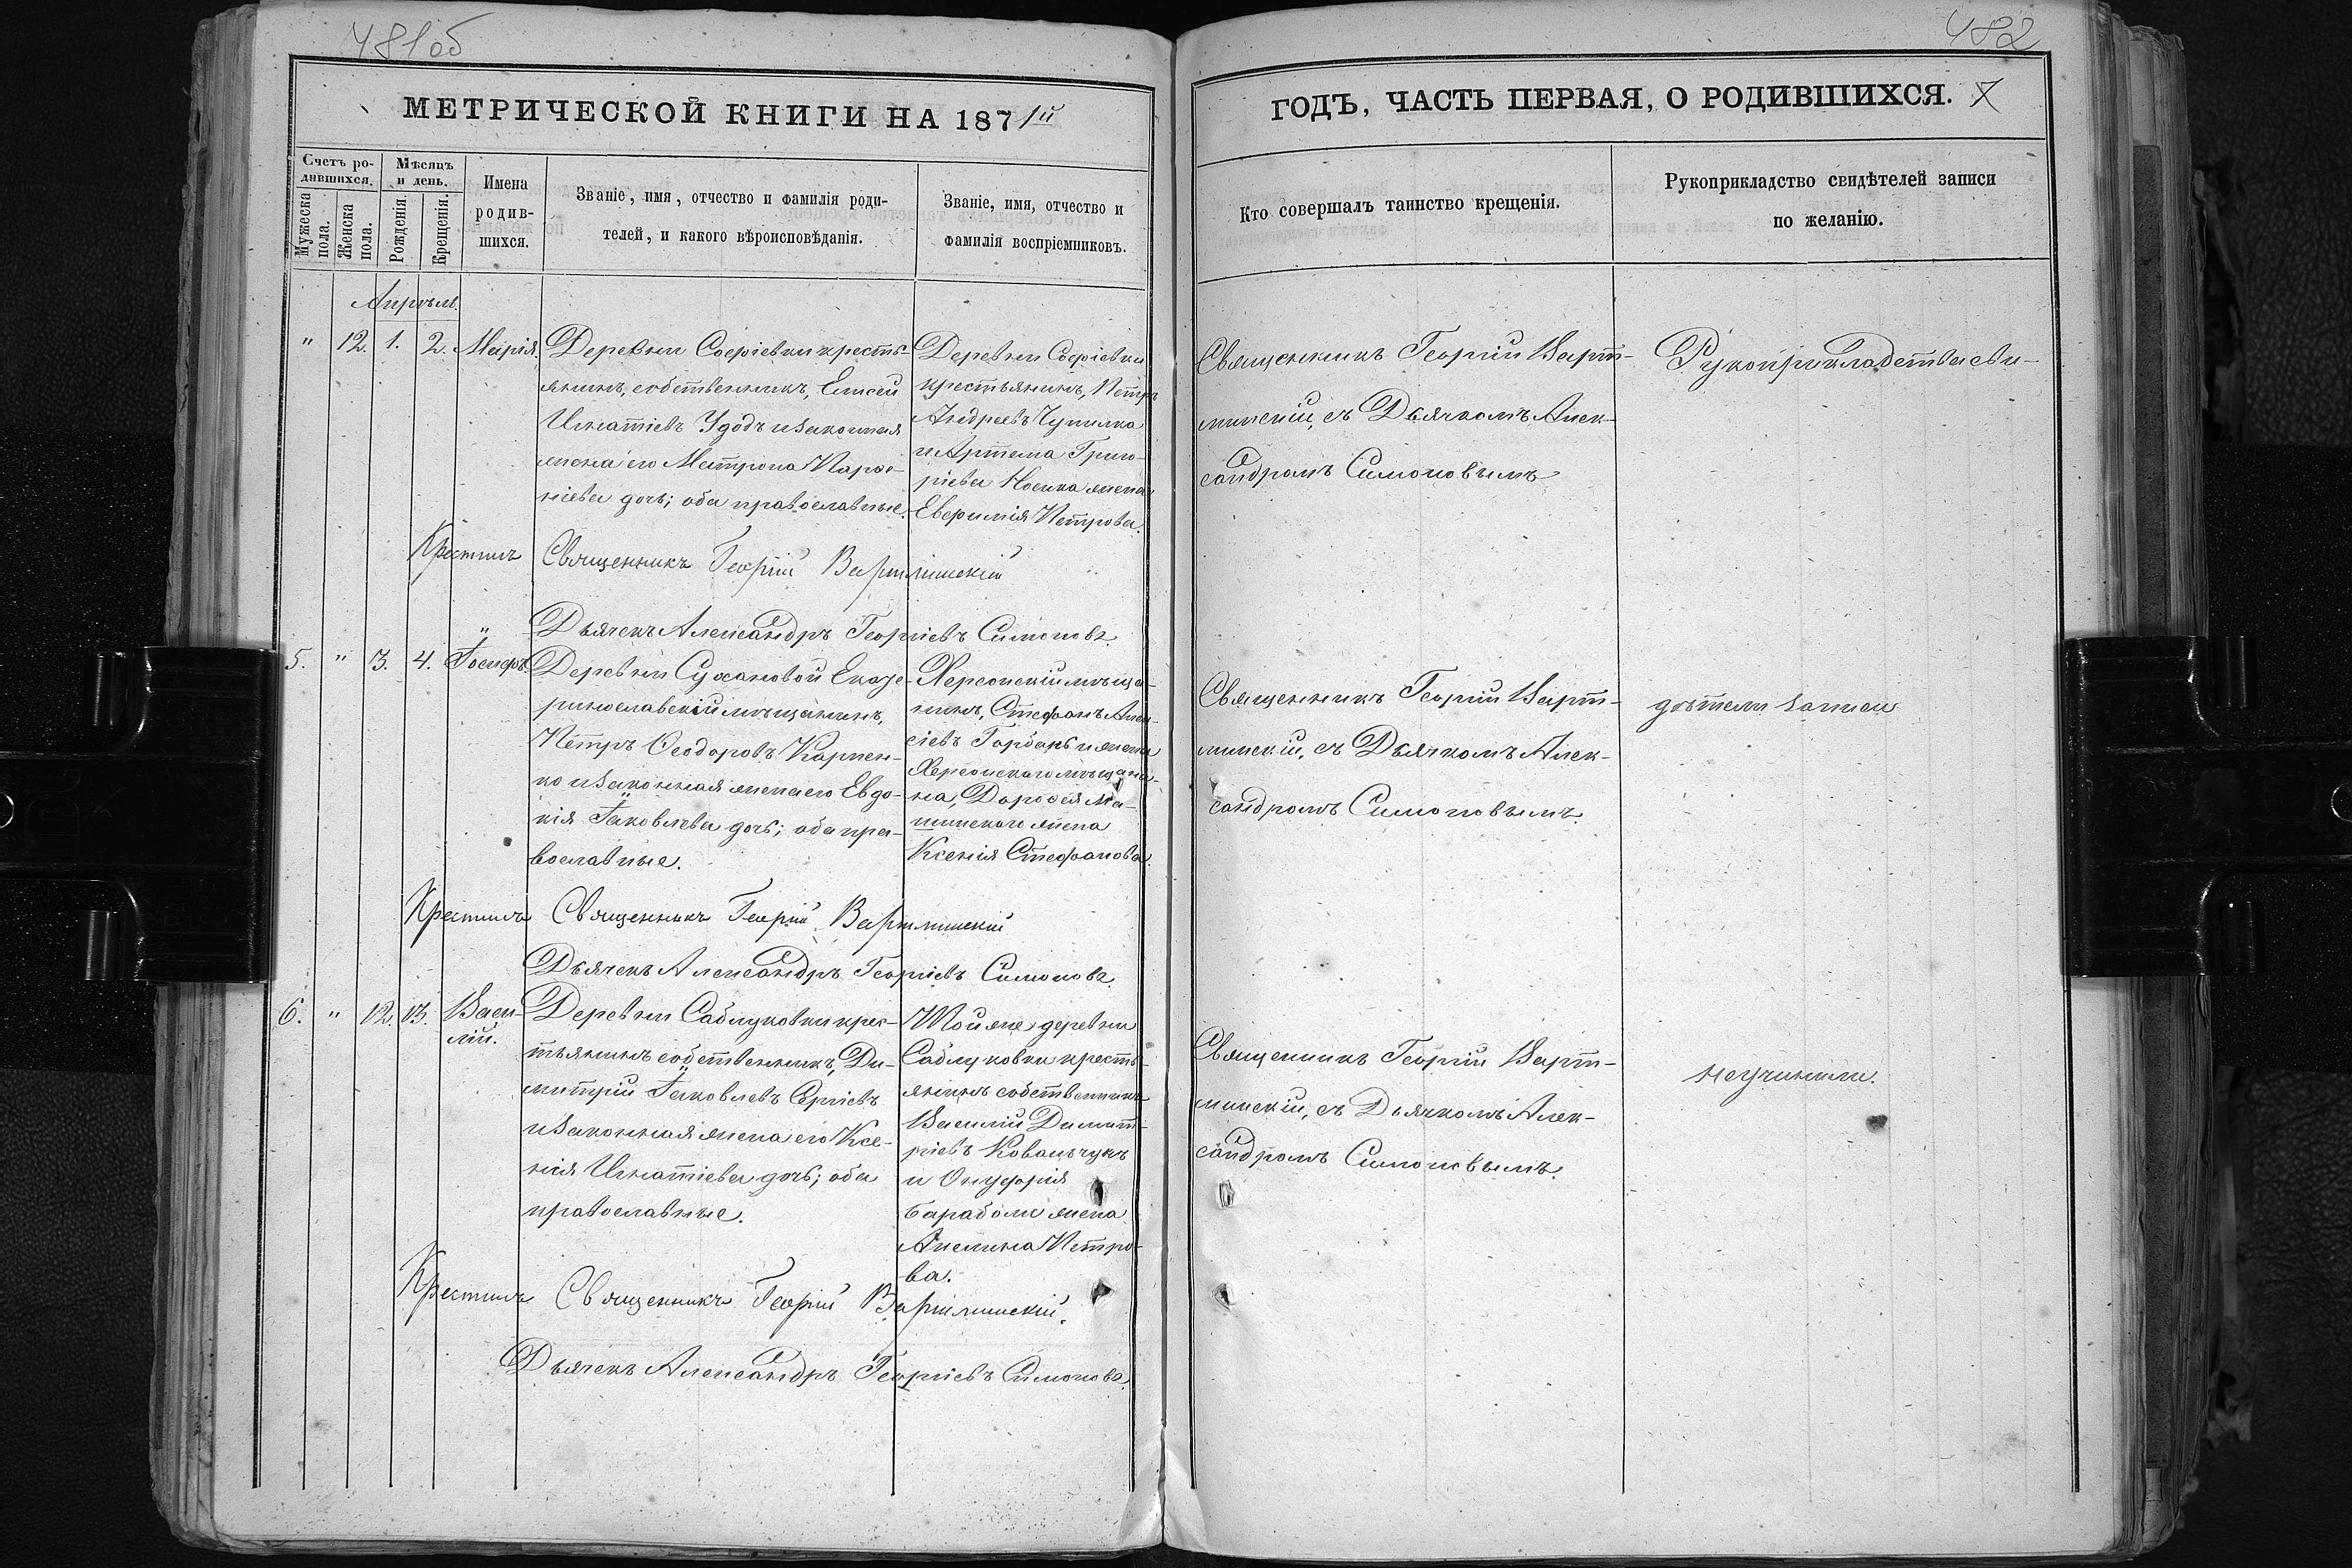 481об
482
МЕТРИЧЕСКОЙ КНИГИ НА 1871й
ГОДЪ, ЧАСТЬ ПЕРВАЯ, О РОДИВШИХСЯ.
Счетъ ро-
дившихся.
Мужеска
пола.
Женска
пола.
Мѣсяцъ
и день.
Рожденія.
Крещенія.
Имена
родив-
шихся.
Званіе, имя, отчество и фамилія роди-
телей, и какого вѣроисповѣданія.
Званіе, имя, отчество и
фамилія воспріемниковъ.
Кто совершалъ таинство крещенія.
Рукоприкладство свидѣтелей записи
по желанію.
Апрѣль.
" 12. 1. 2. Марія.
Деревни Софіевки кресть-
янинъ, собственникъ, Елисей
Игнатіевъ Удодъ и законная
жена его Матрона Парѳе-
ніева дочь; оба православные.
Деревни Софіевки
крестьянинъ, Петръ
Андреевъ Чупилка
и Артема Григо-
ріева Носика жена
Евфимія Петрова.
Священникъ Георгій Варт-
минскій, съ Дьячкомъ Алек-
сандромъ Симоновымъ
Рукоприкладства сви-
Крестилъ Священникъ Георгій Вартминскій
Дьячекъ Александръ Георгіевъ Симоновъ.
5. " 3. 4. Іосифъ.
Деревни Сухановой Екате-
ринославскій мѣщанинъ,
Петръ Ѳеодоровъ Карпен-
ко и законная жена его Евдо-
кія Іаковлева дочь; оба пра-
вославные.
Херсонскій мѣща-
нинъ, Стефанъ Алек-
сіевъ Горбань и жена
Херсонскаго мѣщани-
на, Дороѳея
жена
Ксенія Стефанова.
Священникъ Георгій Варт-
минскій, съ Дьячкомъ Алек-
сандромъ Симоновымъ.
дѣтели записи
Крестилъ Священникъ Георгій Вартминскій
Дьячекъ Александръ Георгіевъ Симоновъ.
6. " 12. 13. Васи-
лій.
Деревни Саблуковки крес-
тьянинъ собственникъ, Ди-
митрій Іаковлевъ Сергіевъ
и законная жена его Ксе-
нія Игнатіева дочь; оба
православные.
Той же деревни
Саблуковки кресть-
янинъ собственникъ
Василій Димит-
ріевъ Ковальчукъ
и Онуфрія
Бараболи жена
Акелина Петро-
ва.
Священникъ Георгій Варт-
минскій, съ Дьячкомъ Алек-
сандромъ Симоновымъ.
неучинили.
Крестилъ Священникъ Георгій Вартминскій.
Дьячекъ Александръ Георгіевъ Симоновъ.